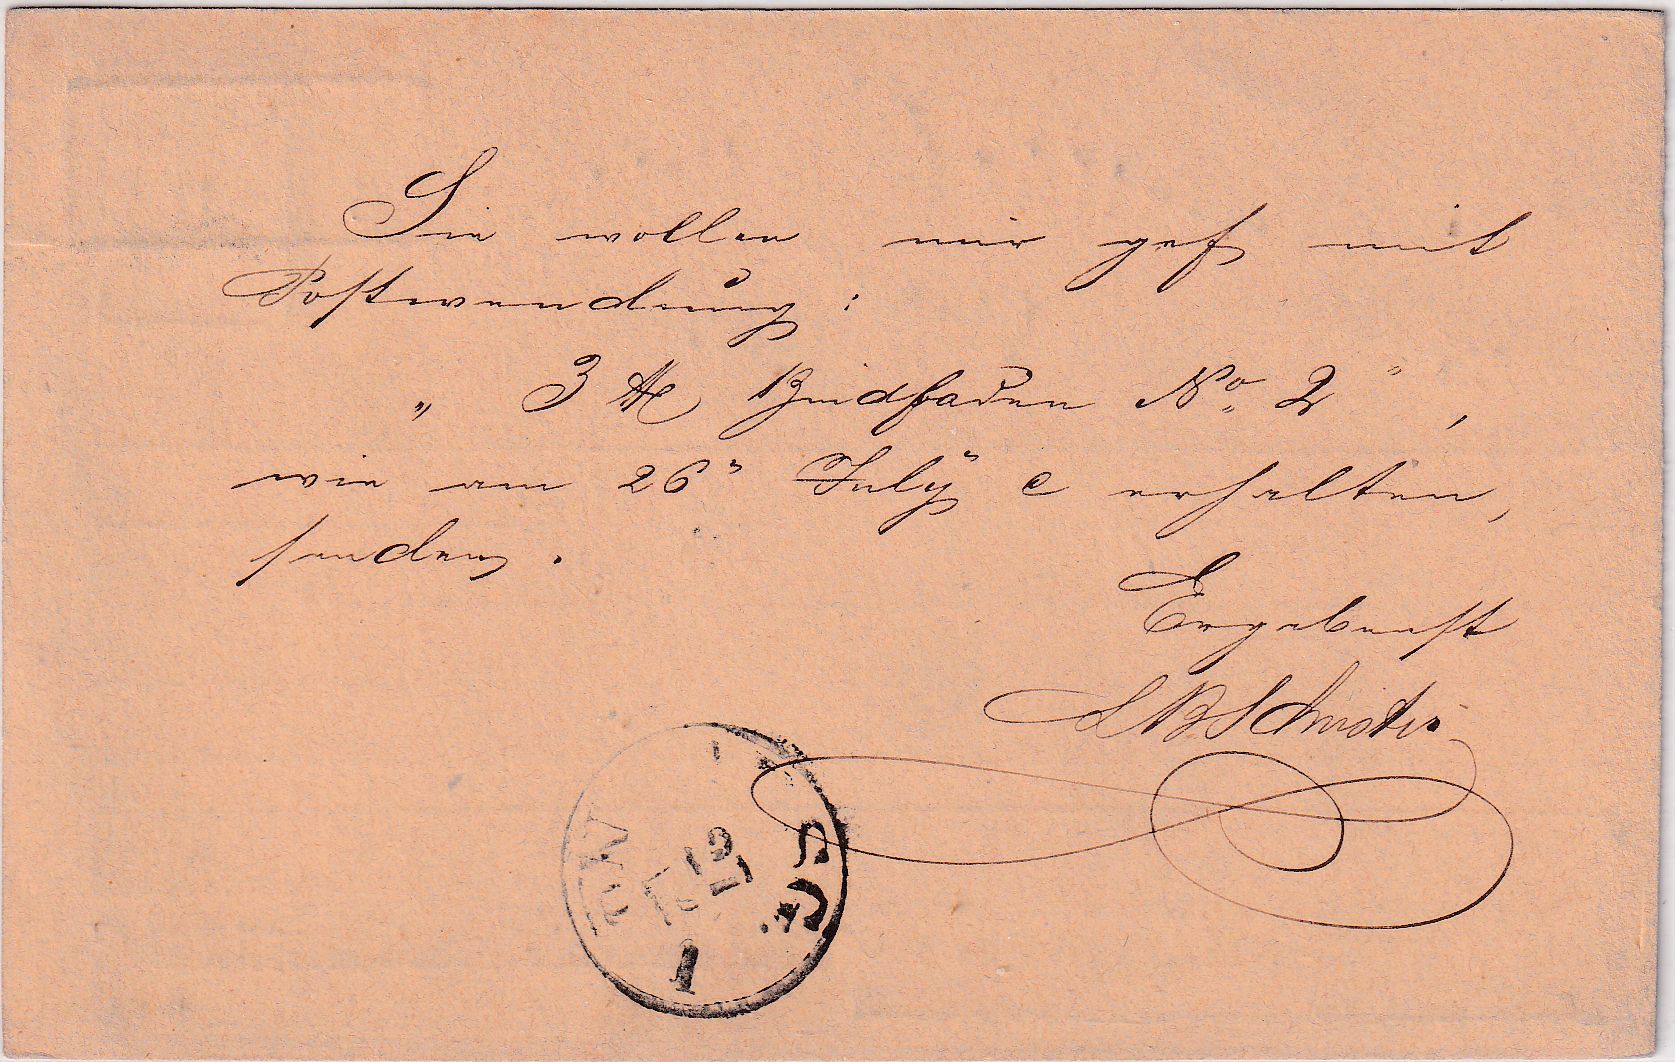 Sie wollen mir gef mit
Postwendung:
„ 3 ℔ Bindfaden No. 2 ",
wie am 26" July c erhalten,
senden.
Ergebenst
LBSchuster
19
1